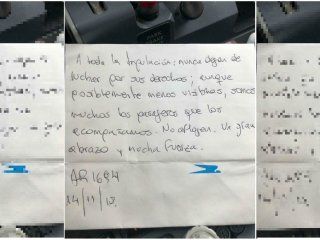 PARK
A toda la tripulación: nunca dejen de
luchar por sus derechos; aunque
posiblemente menos visibles, somos
muchos los pasajeros que los
acompañamos. No aflojen. Un gran
abrazo y mucha fuerza.
AR 1694
24/11/